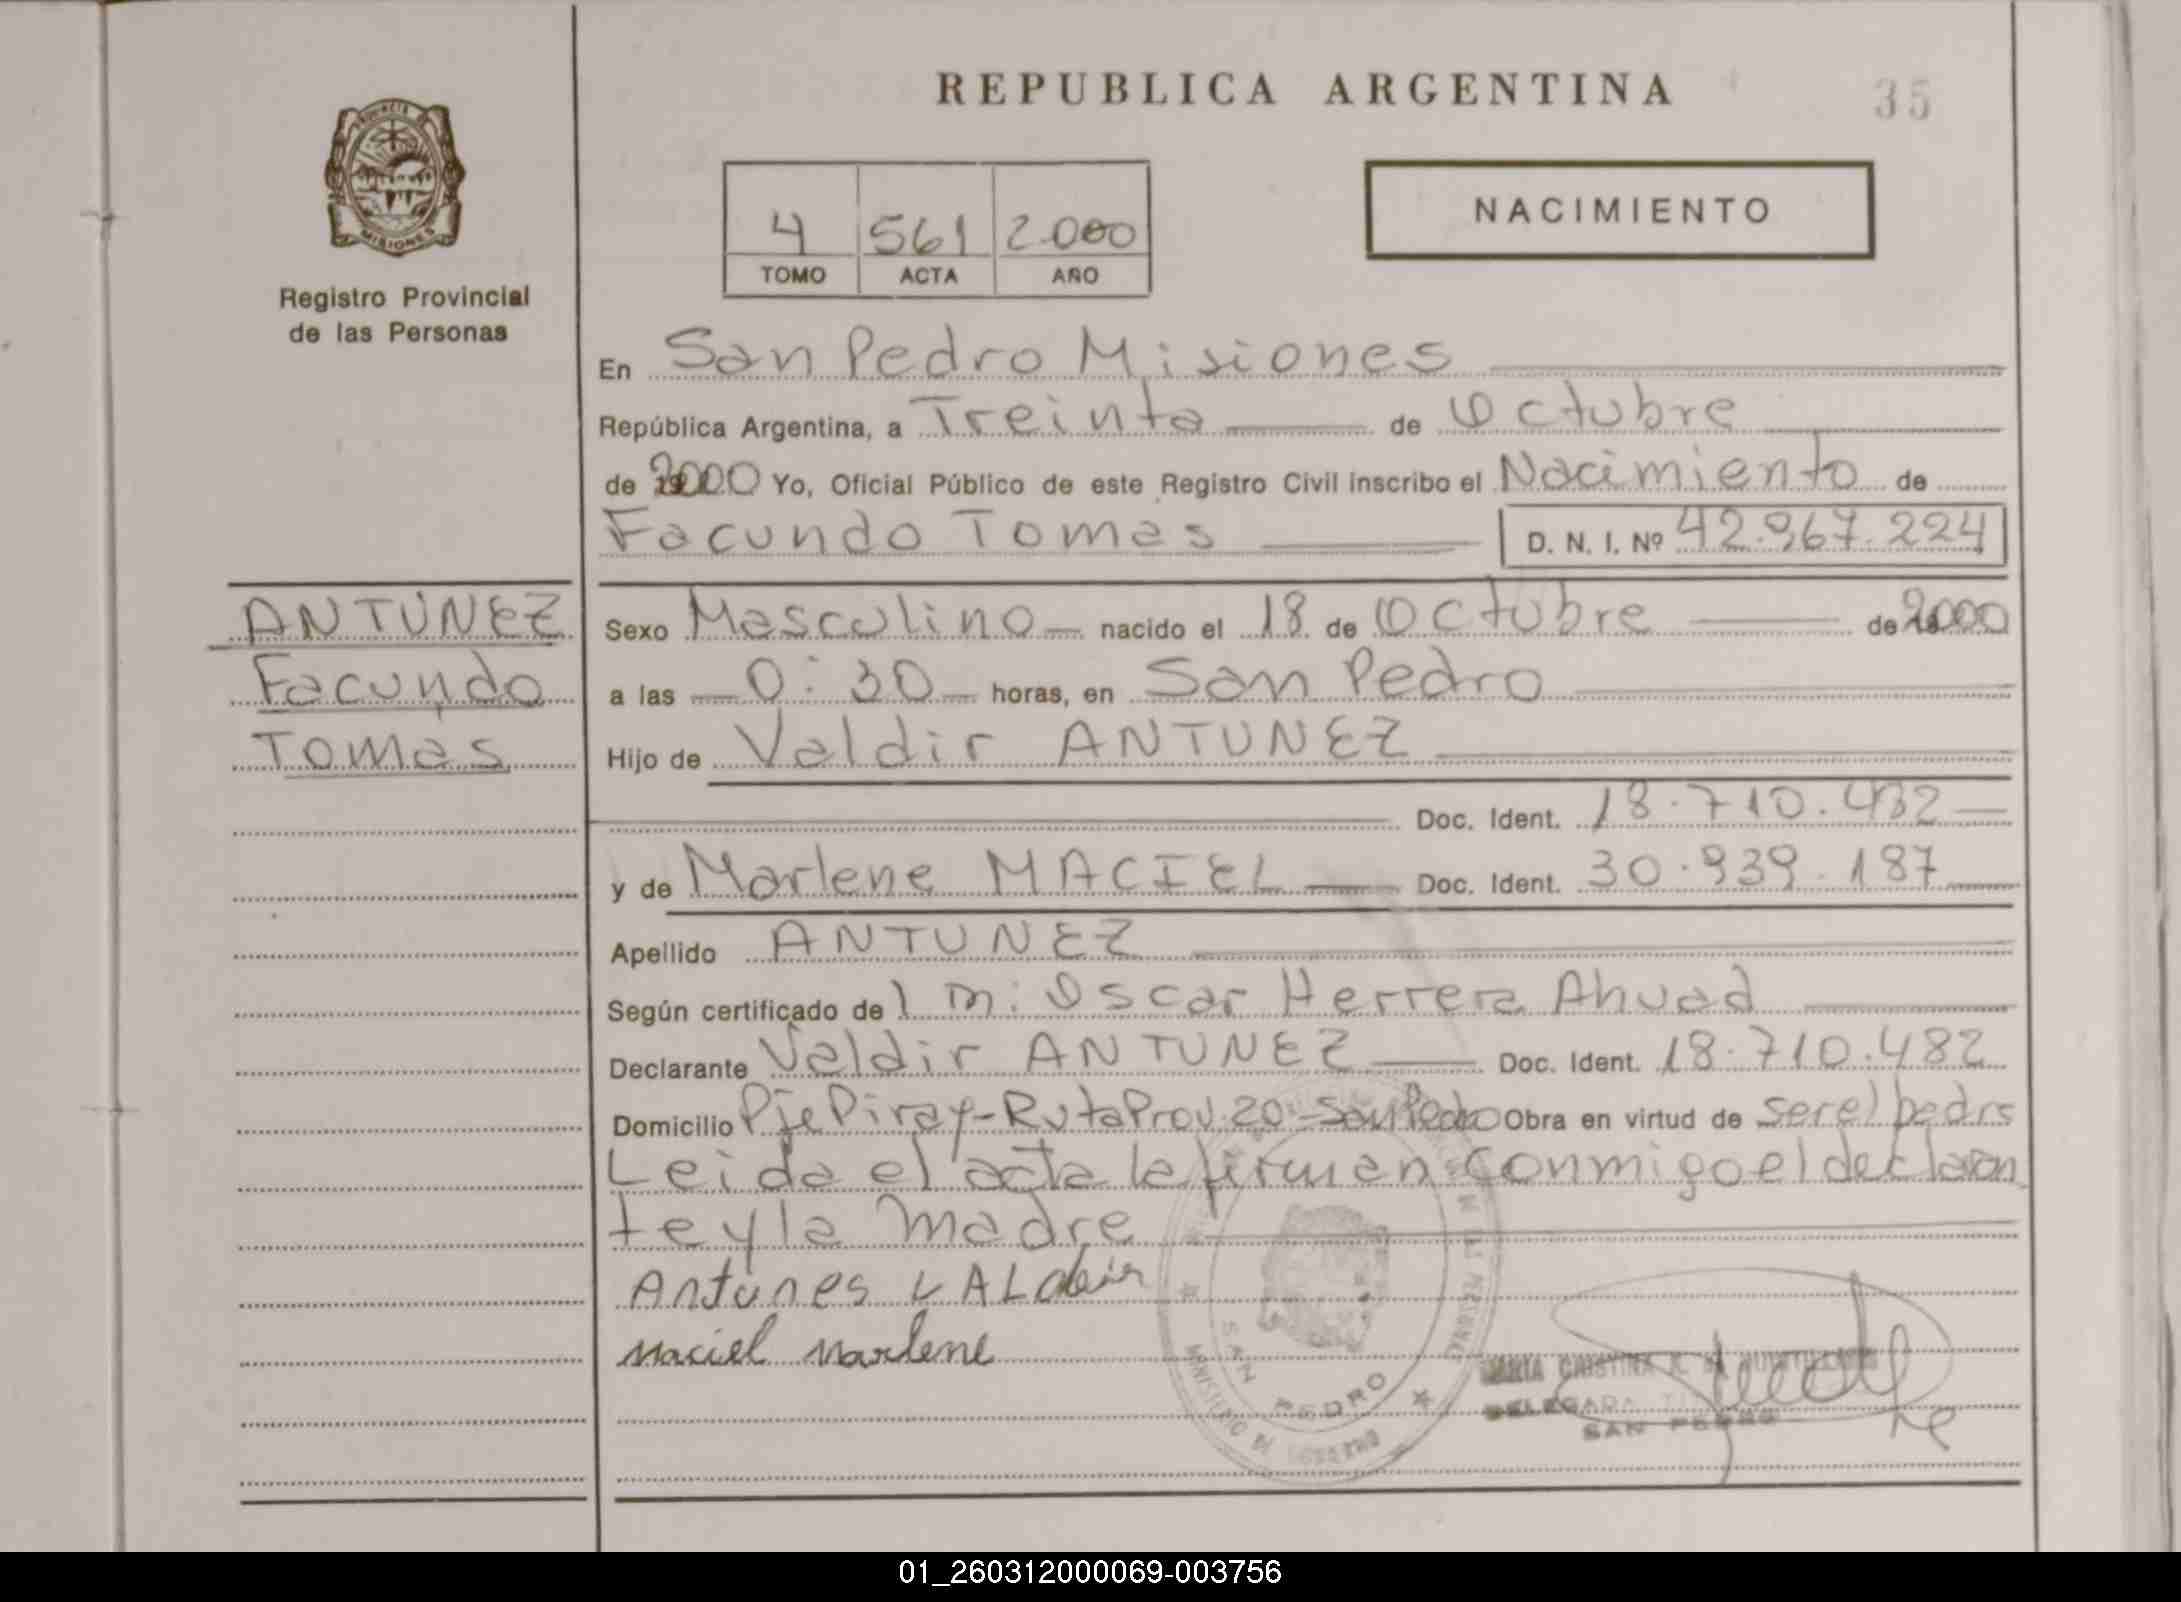 REPUBLICA ARGENTINA
35
PROVINCIA DE
MISIONES
Registro Provincial
de las Personas
4 561 2.000
TOMO ACTA AÑO
NACIMIENTO
En San Pedro Misiones
República Argentina, a Treinta de Octubre
de 2000 Yo, Oficial Público de este Registro Civil inscribo el Nacimiento de
Facundo Tomas D. N. I. Nº 42.967.224
ANTUNEZ
Facundo
Tomas
Sexo Masculino nacido el 18 de Octubre de 2000
a las 0:30 horas, en San Pedro
Hijo de Valdir ANTUNEZ
Doc. Ident. 18.710.482
y de Marlene MACIEL Doc. Ident. 30.939.187
Apellido ANTUNEZ
Según certificado de 1 m: Oscar Herrera Ahuad
Declarante Valdir ANTUNEZ Doc. Ident. 18.710.482
Domicilio Pje Piray-Ruta Prov. 20-San Pedro Obra en virtud de ser el padre
Leida el acta la firman conmigo el declaran
te y la madre
Antunes VALdeir
Maciel Marlene
SAN PEDRO
MINISTERIO DE GOBIERNO
MARIA CRISTINA
DELEGADA
SAN PEDRO
01_260312000069-003756